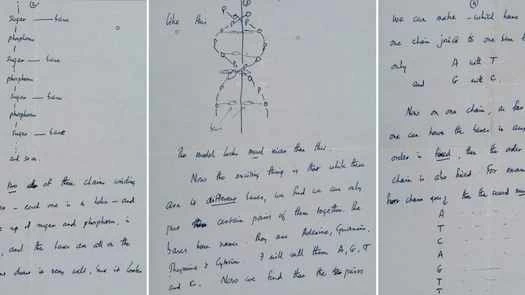 sugar — base
phosphorus
sugar — base
phosphorus
sugar — base
phosphorus
sugar — base
and so on.
two of these chains winding
— each one is a helix — and
up of sugar and phosphorus, is
, and the bases are all on the
draw it very well, but it looks
like this
The model looks much nicer than this.
Now the exciting thing is that while there
are 4 different bases, we find we can only
put certain pairs of them together. The
bases have names. They are Adenine, Guanine,
Thymine & Cytosine. I will call them A, G, T
and C. Now we find that the pairs
We can make — which have
one chain joined to one base
only A with T
and G with C.
Now on one chain, as far
one can have the bases in any
order is fixed, then the order
chain is also fixed. For exam
first chain goes then the second must
A
T
C
A
G
T
T